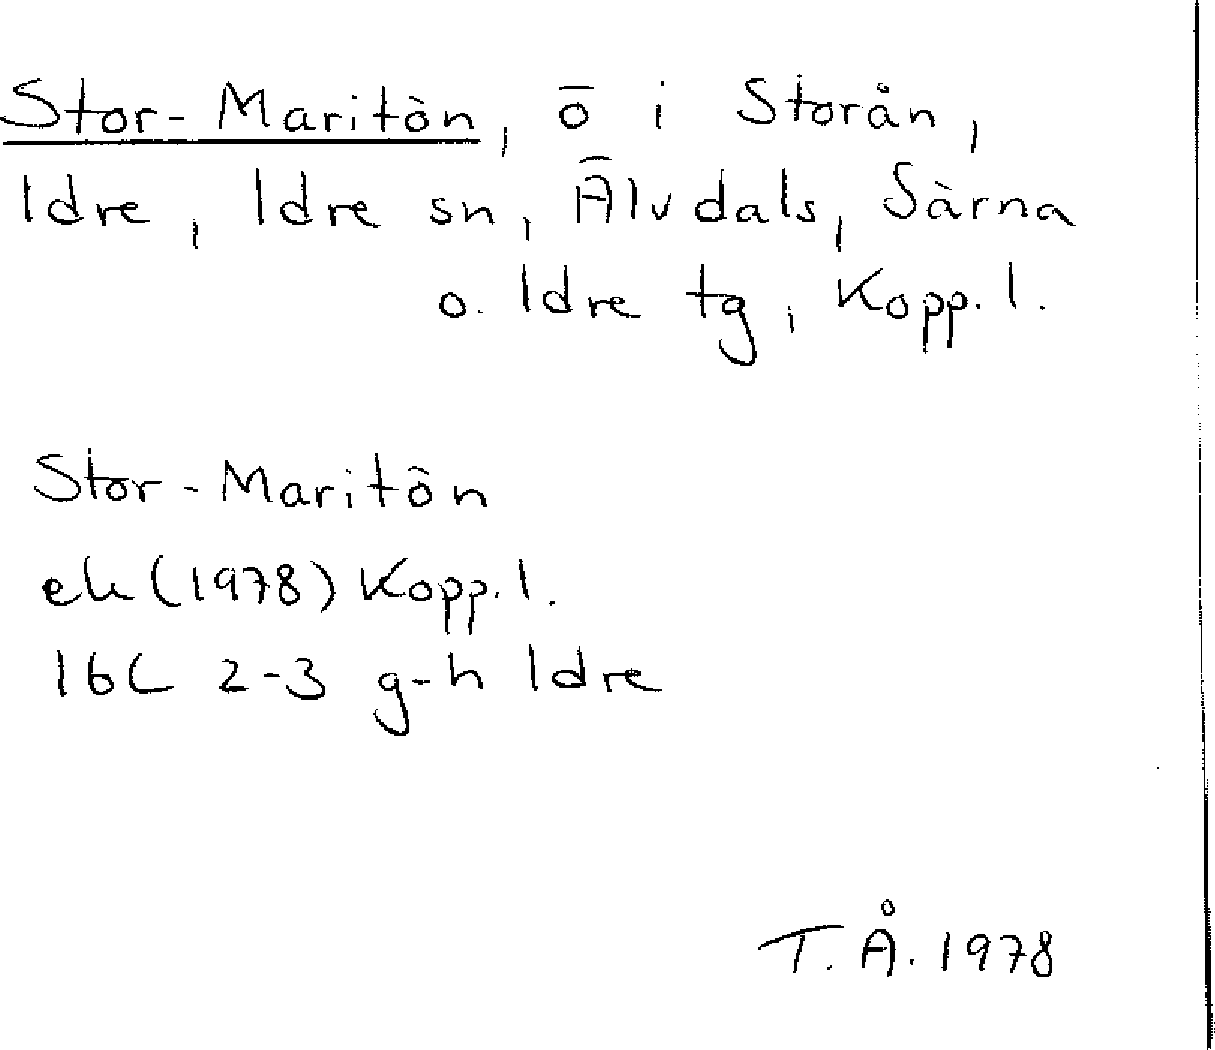 Stor-Maritön, ö i Storån,
Idre, Idre sn, Älvdals, Särna
o. Idre tg, Kopp. l.
Stor-Maritön
ek (1978) Kopp. l.
16C 2-3 g-h Idre
T. Å. 1978